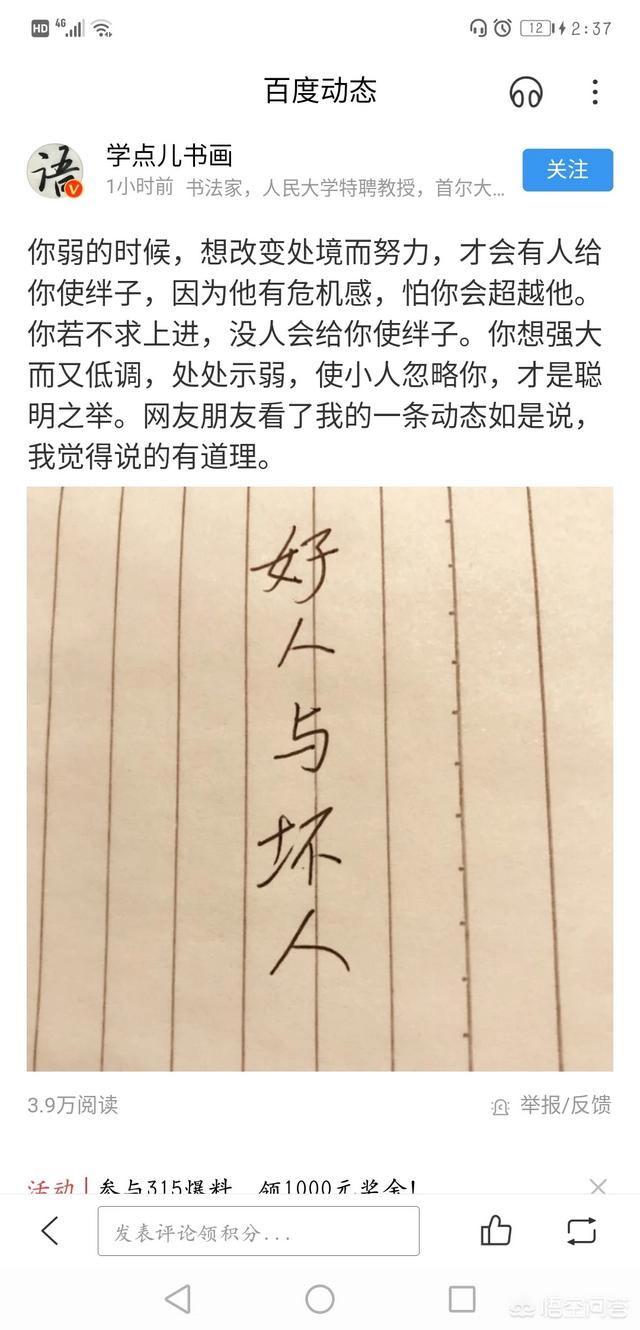 HD 4G 12 2:37
百度动态
学点儿书画
1小时前 书法家，人民大学特聘教授，首尔大...
关注
语
你弱的时候，想改变处境而努力，才会有人给
你使绊子，因为他有危机感，怕你会超越他。
你若不求上进，没人会给你使绊子。你想强大
而又低调，处处示弱，使小人忽略你，才是聪
明之举。网友朋友看了我的一条动态如是说，
我觉得说的有道理。
好人与坏人
3.9万阅读
举报/反馈
活动 参与315爆料，领1000元奖金！
发表评论领积分...
悟空问答